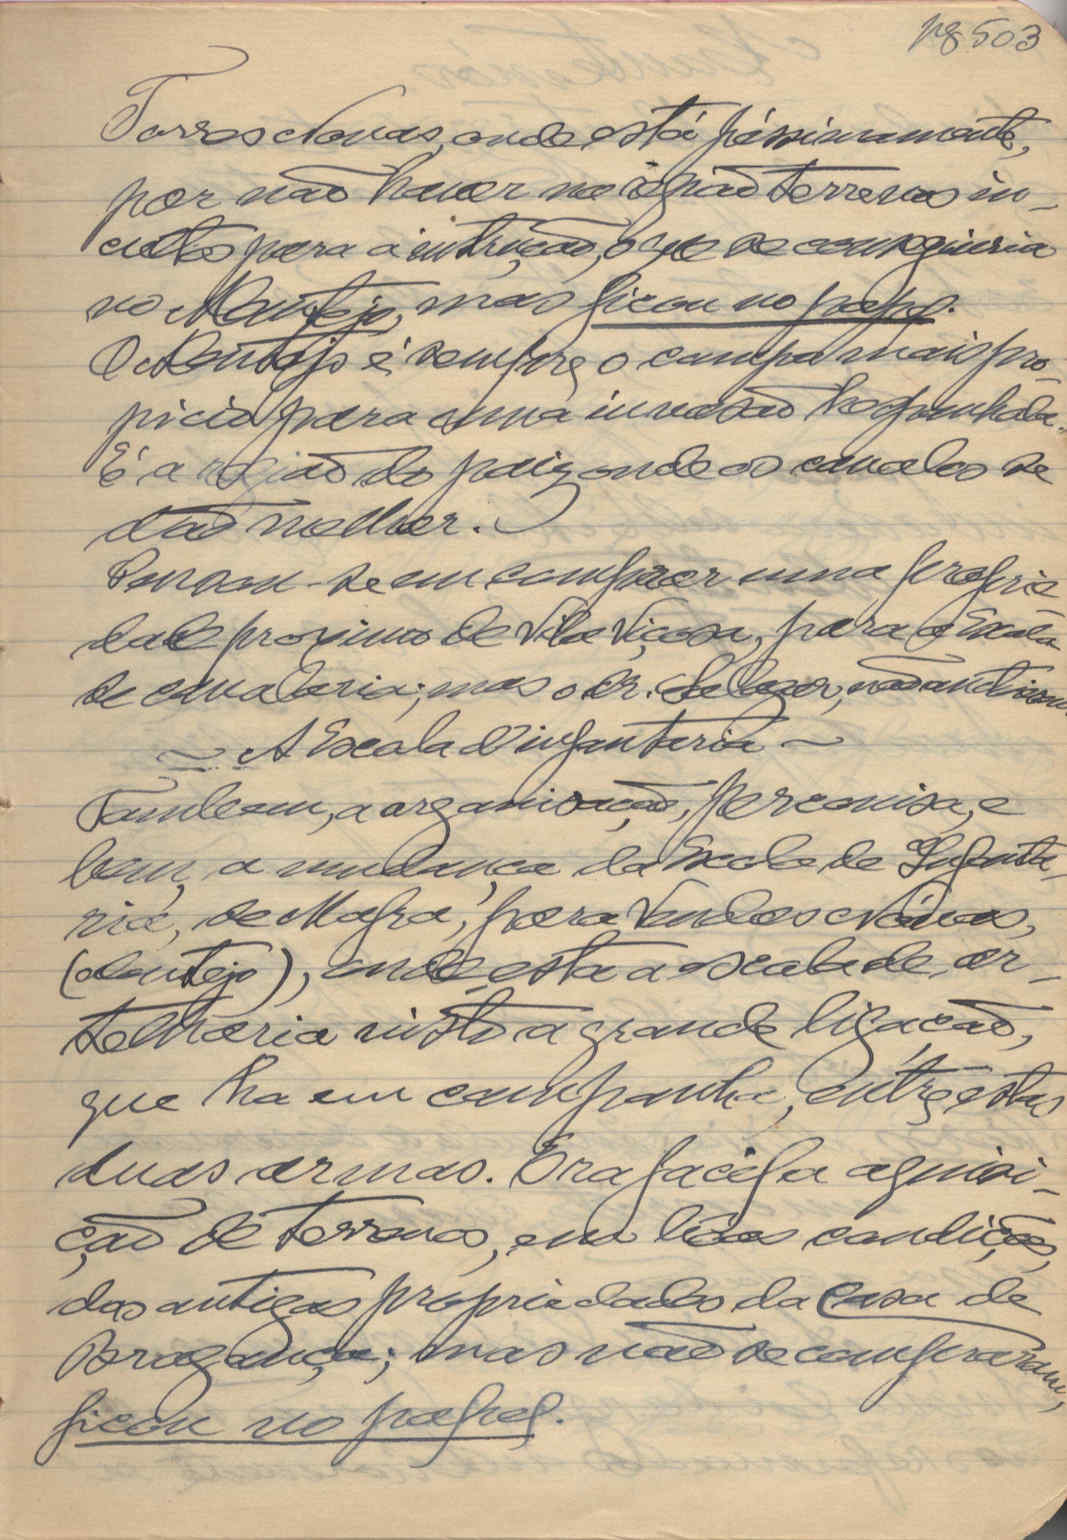 pg 503
Torres Novas, onde está péssimamente,
por não haver na região terrenos in-
cultos para a intrução, o que se conseguiria
no Alentejo, mas ficou no papel.
O Alentejo é sempre o campo mais pro-
picio para uma invasão hespanhola.
É a região do paiz onde os cavalos se
dão melhor.
Pensou-se em comprar uma proprie-
dade proximo de Vila Viçosa, para a Escola
de cavalaria; mas o Dr. Salazar, não andou
~ A Escola d'infantaria ~
Tambem, a organisação, perconisa, e
bem, a mudança da Escola de Infanta-
ria, de Mafra, para Vendas Novas,
(alentejo), onde esta a escola de ar-
telharia visto a grande ligação,
que ha em campanha, entre estas
duas armas. Era facil a aquisi-
ção de terrenos, em bôas condições,
das antigas propriedades da Casa de
Bragança; mas não se compraram,
ficou no papel.